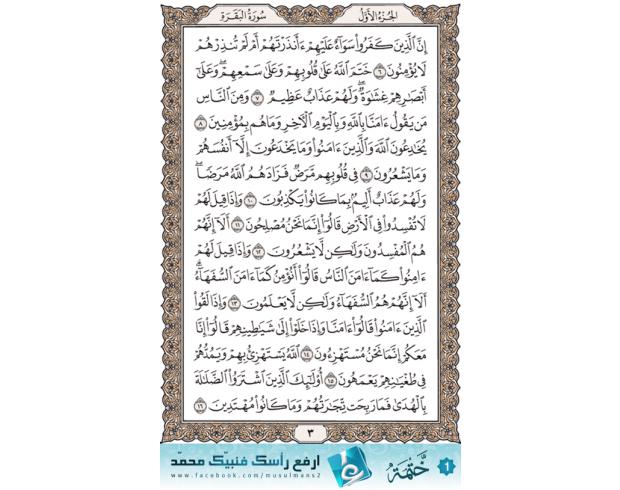 الجزء الأول
سورة البقرة
إِنَّ ٱلَّذِينَ كَفَرُوا۟ سَوَآءٌ عَلَيْهِمْ ءَأَنذَرْتَهُمْ أَمْ لَمْ تُنذِرْهُمْ
لَا يُؤْمِنُونَ ٦ خَتَمَ ٱللَّهُ عَلَىٰ قُلُوبِهِمْ وَعَلَىٰ سَمْعِهِمْ ۖ وَعَلَىٰٓ
أَبْصَٰرِهِمْ غِشَٰوَةٌ ۖ وَلَهُمْ عَذَابٌ عَظِيمٌ ٧ وَمِنَ ٱلنَّاسِ
مَن يَقُولُ ءَامَنَّا بِٱللَّهِ وَبِٱلْيَوْمِ ٱلْءَاخِرِ وَمَا هُم بِمُؤْمِنِينَ ٨
يُخَٰدِعُونَ ٱللَّهَ وَٱلَّذِينَ ءَامَنُوا۟ وَمَا يَخْدَعُونَ إِلَّآ أَنفُسَهُمْ
وَمَا يَشْعُرُونَ ٩ فِى قُلُوبِهِم مَّرَضٌ فَزَادَهُمُ ٱللَّهُ مَرَضًا ۖ
وَلَهُمْ عَذَابٌ أَلِيمٌۢ بِمَا كَانُوا۟ يَكْذِبُونَ ١٠ وَإِذَا قِيلَ لَهُمْ
لَا تُفْسِدُوا۟ فِى ٱلْأَرْضِ قَالُوٓا۟ إِنَّمَا نَحْنُ مُصْلِحُونَ ١١ أَلَآ إِنَّهُمْ
هُمُ ٱلْمُفْسِدُونَ وَلَٰكِن لَّا يَشْعُرُونَ ١٢ وَإِذَا قِيلَ لَهُمْ
ءَامِنُوا۟ كَمَآ ءَامَنَ ٱلنَّاسُ قَالُوٓا۟ أَنُؤْمِنُ كَمَآ ءَامَنَ ٱلسُّفَهَآءُ ۗ
أَلَآ إِنَّهُمْ هُمُ ٱلسُّفَهَآءُ وَلَٰكِن لَّا يَعْلَمُونَ ١٣ وَإِذَا لَقُوا۟
ٱلَّذِينَ ءَامَنُوا۟ قَالُوٓا۟ ءَامَنَّا وَإِذَا خَلَوْا۟ إِلَىٰ شَيَٰطِينِهِمْ قَالُوٓا۟ إِنَّا
مَعَكُمْ إِنَّمَا نَحْنُ مُسْتَهْزِءُونَ ١٤ ٱللَّهُ يَسْتَهْزِئُ بِهِمْ وَيَمُدُّهُمْ
فِى طُغْيَٰنِهِمْ يَعْمَهُونَ ١٥ أُو۟لَٰٓئِكَ ٱلَّذِينَ ٱشْتَرَوُا۟ ٱلضَّلَٰلَةَ
بِٱلْهُدَىٰ فَمَا رَبِحَت تِّجَٰرَتُهُمْ وَمَا كَانُوا۟ مُهْتَدِينَ ١٦
٣
١ ختمة
ارفع رأسك فنبيك محمد
www.facebook.com/musulmans2